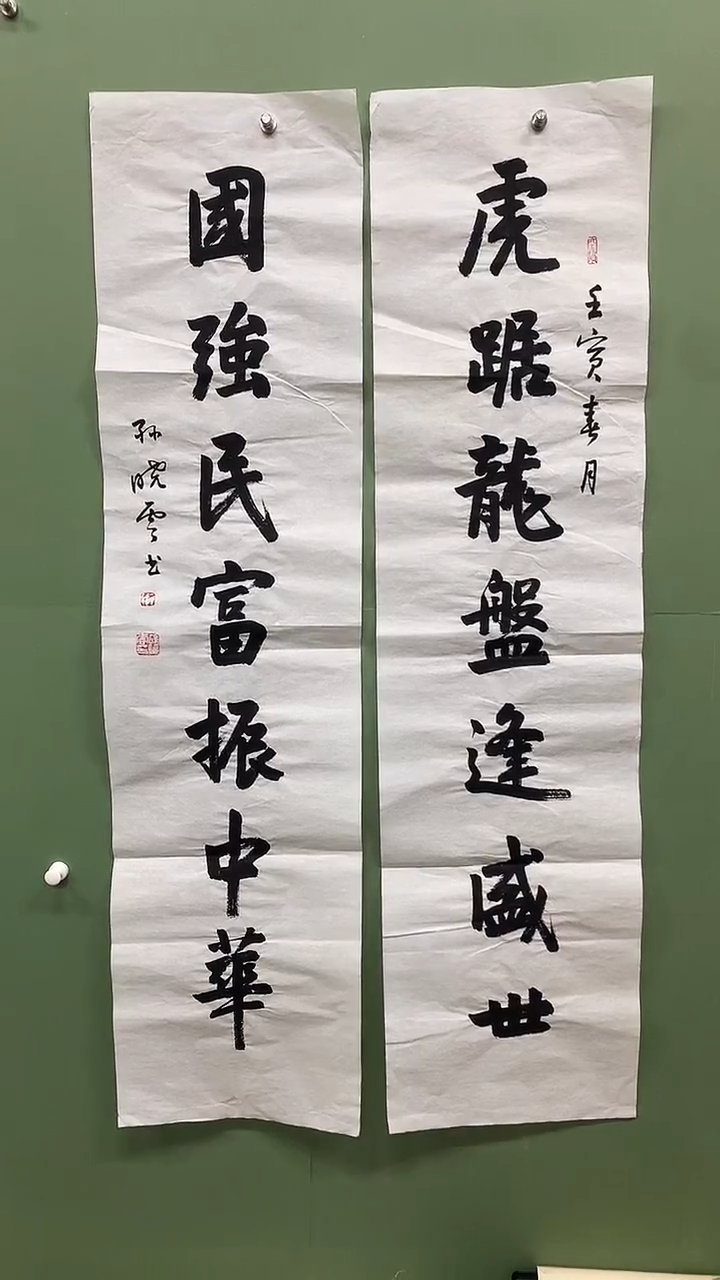 壬寅春月
虎踞龍盤逢盛世
國強民富振中華
孙晓雲书